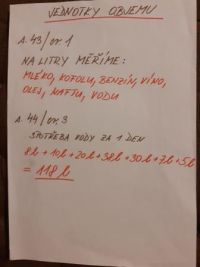 JEDNOTKY OBJEMU
A. 43/cv. 1
NA LITRY MĚŘÍME:
MLÉKO, KOFOLU, BENZÍN, VÍNO,
OLEJ, NAFTU, VODU
A. 44/cv. 3
SPOTŘEBA VODY ZA 1 DEN
8l + 10l + 20l + 38l + 30l + 7l + 5l
= 118 l